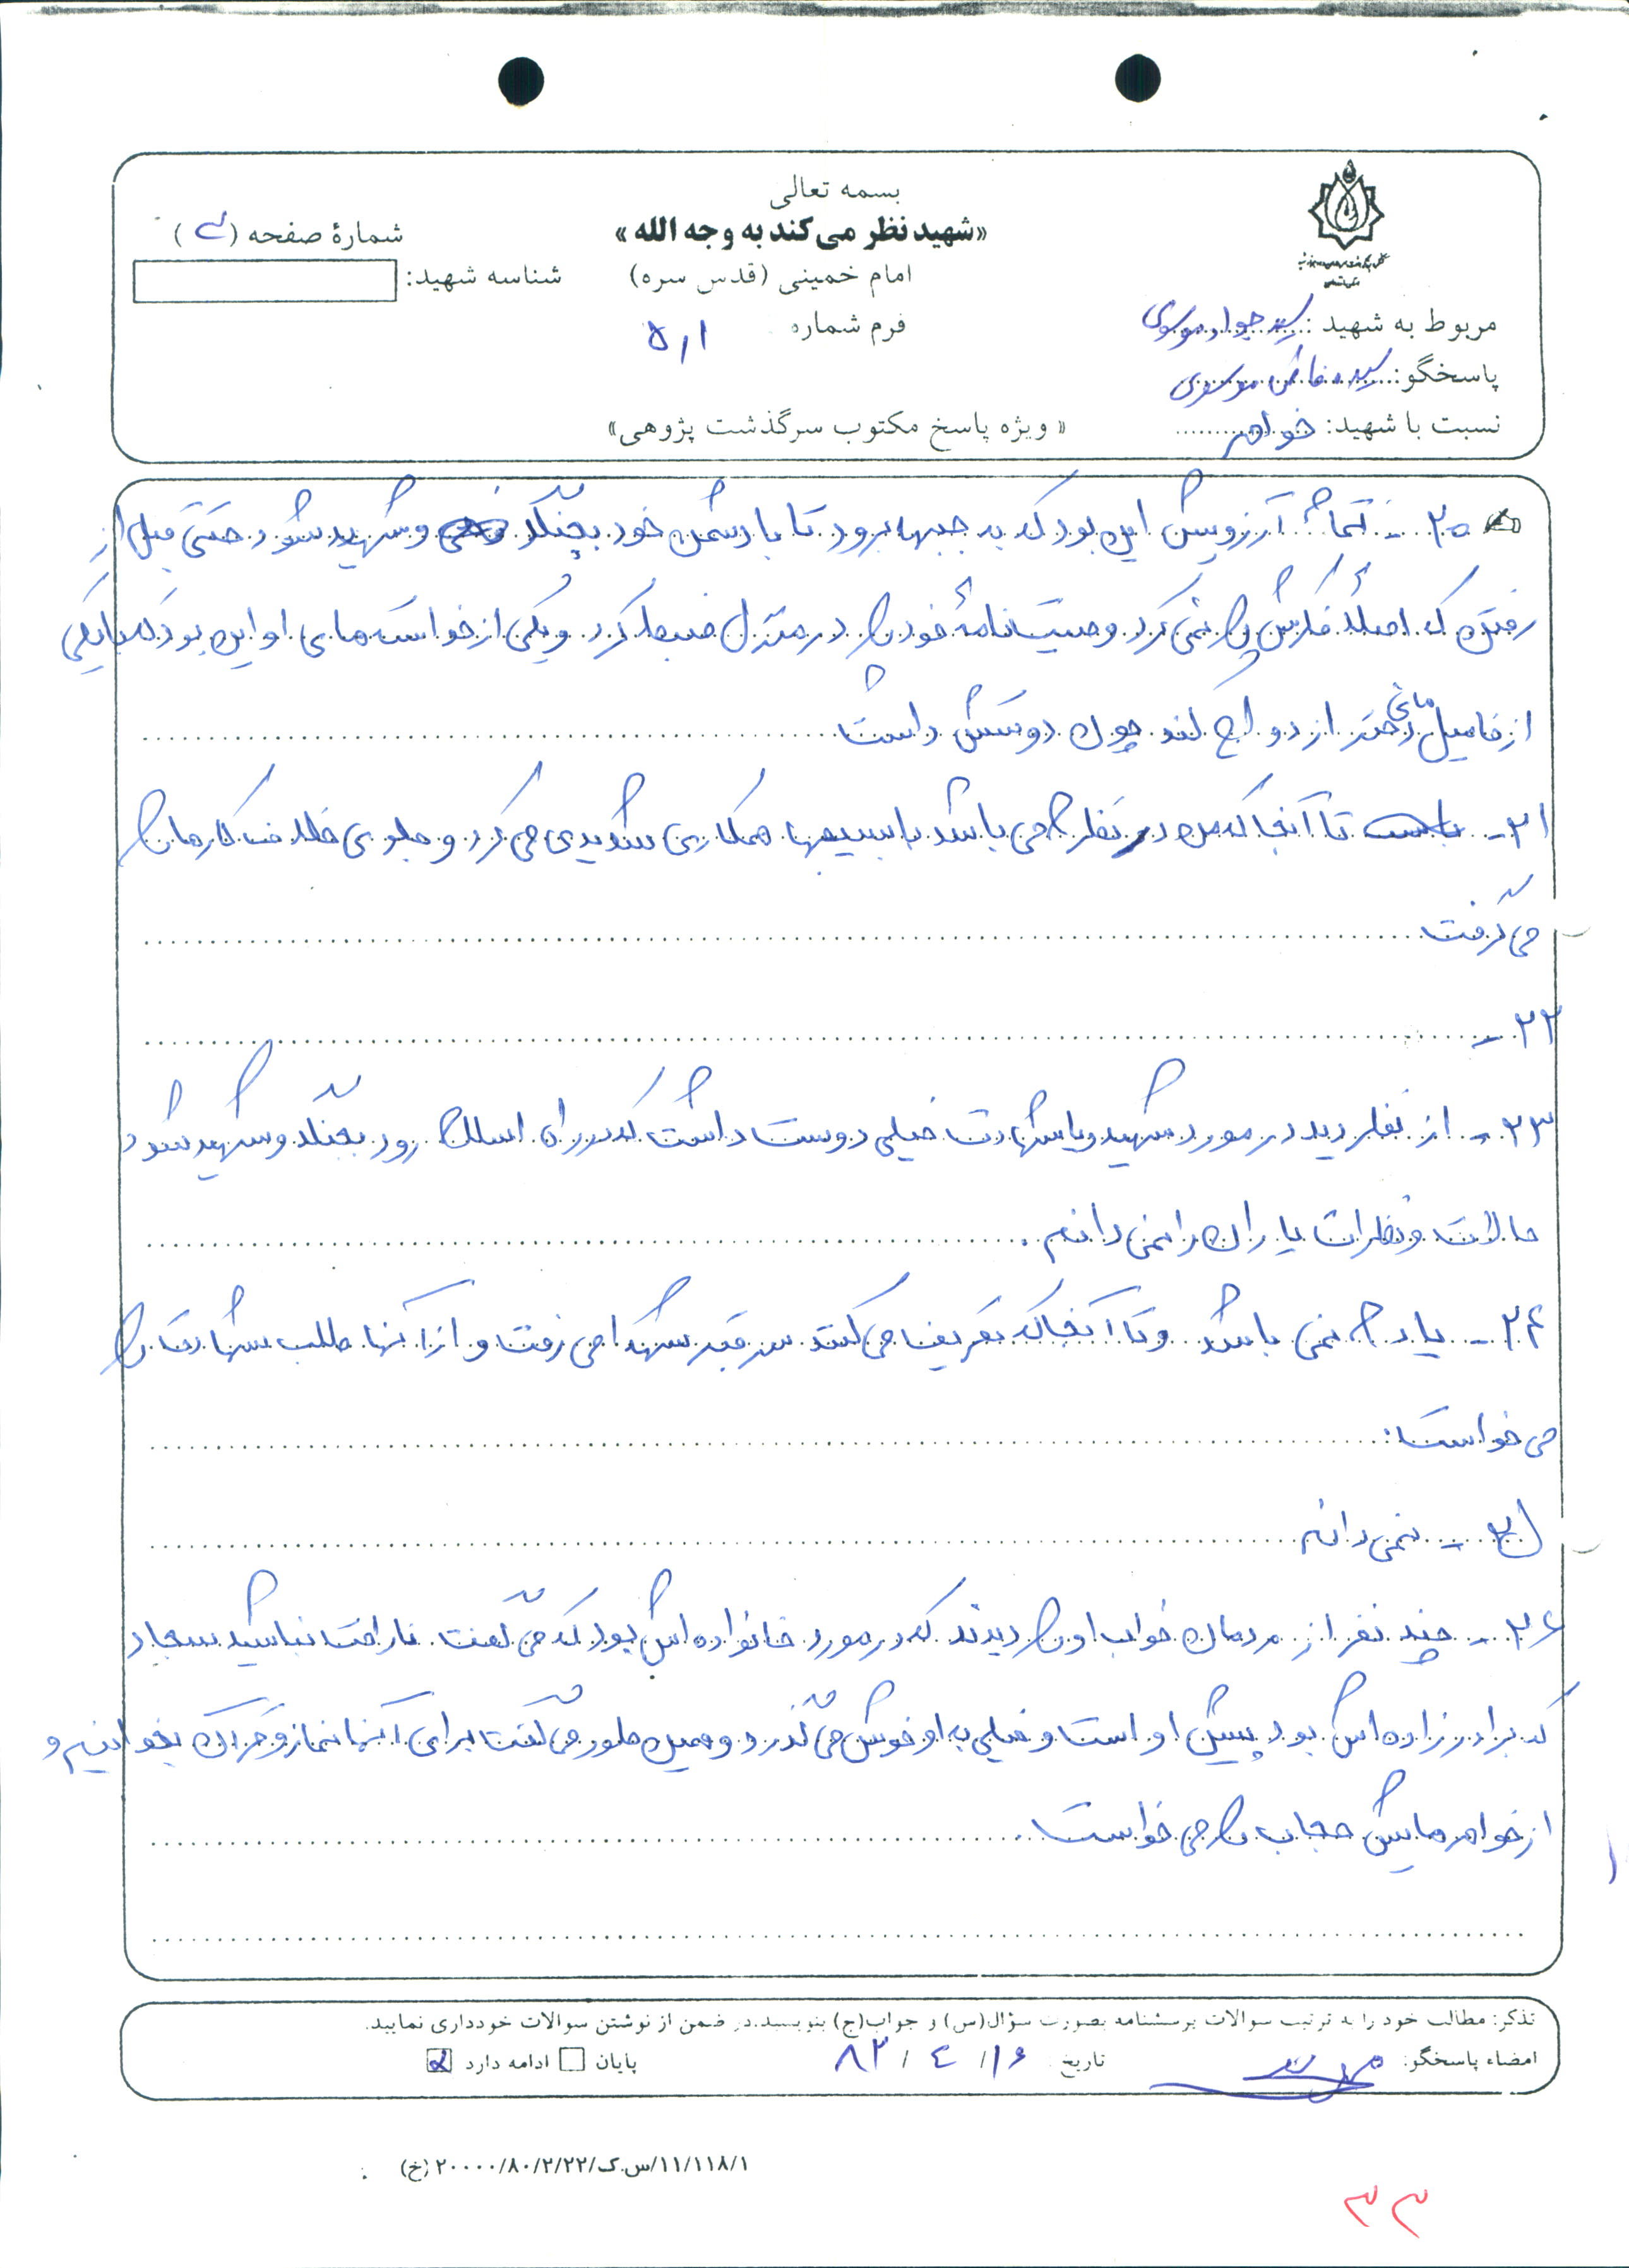 بسمه تعالی
«شهید نظر می‌کند به وجه الله»
امام خمینی (قدس سره)
فرم شماره ۵/۱
شمارهٔ صفحه ( )
شناسه شهید:
مربوط به شهید: سید جواد موسوی
پاسخگو: سیده موسوی
نسبت با شهید: خواهر
« ویژه پاسخ مکتوب سرگذشت پژوهی»
۲۰- تمام آرزویش این بود که به جبهه برود تا با دشمن خود بجنگد و شهید شود حتی قبل از
رفتن که اصلاً فکرش را نمی کرد وصیت نامهٔ خود را در منزل ضبط کرد و یکی از خواسته های او این بود که با یکی
از فامیل مانی دختر ازدواج کند چون دوستش داشت
۲۱- تا آنجا که من در نظرم می باشد با بسیجها همکاری شدیدی می کرد و جلوی خلاف کارها را
می گرفت
۲۲-
۲۳- از نظر دید در مورد شهید و یا شهادت خیلی دوست داشت که در راه اسلام رود بجنگد و شهید شود
حالات و نظرات یاران را نمی دانم.
۲۴- یادم نمی باشد و تا آنجا که تعریف می کنند سر قبر شهدا می رفت و از آنها طلب شهادت را
می خواست.
۲۵- نمی دانم
۲۶- چند نفر از مردمان خواب او را دیدند که در مورد خانواده اش بود که می گفت ناراحت نباشید سجاد
که برادرزاده اش بود پیش او است و خیلی به او خوش می گذرد و همین طور می گفت برای آنها نماز و قرآن بخوانیم و
از خواهرهایش حجاب را می خواست.
تذکر: مطالب خود را به ترتیب سوالات پرسشنامه بصورت سؤال(س) و جواب(ج) بنویسید.در ضمن از نوشتن سوالات خودداری نمایید.
امضاء پاسخگو:
تاریخ ۱۶/ ۴ / ۸۳
پایان
ادامه دارد
۱/۱۱۸/۱۱/س.ک/۲۰۰۰۰/۸۰/۲/۲۲ (خ)
۳۳